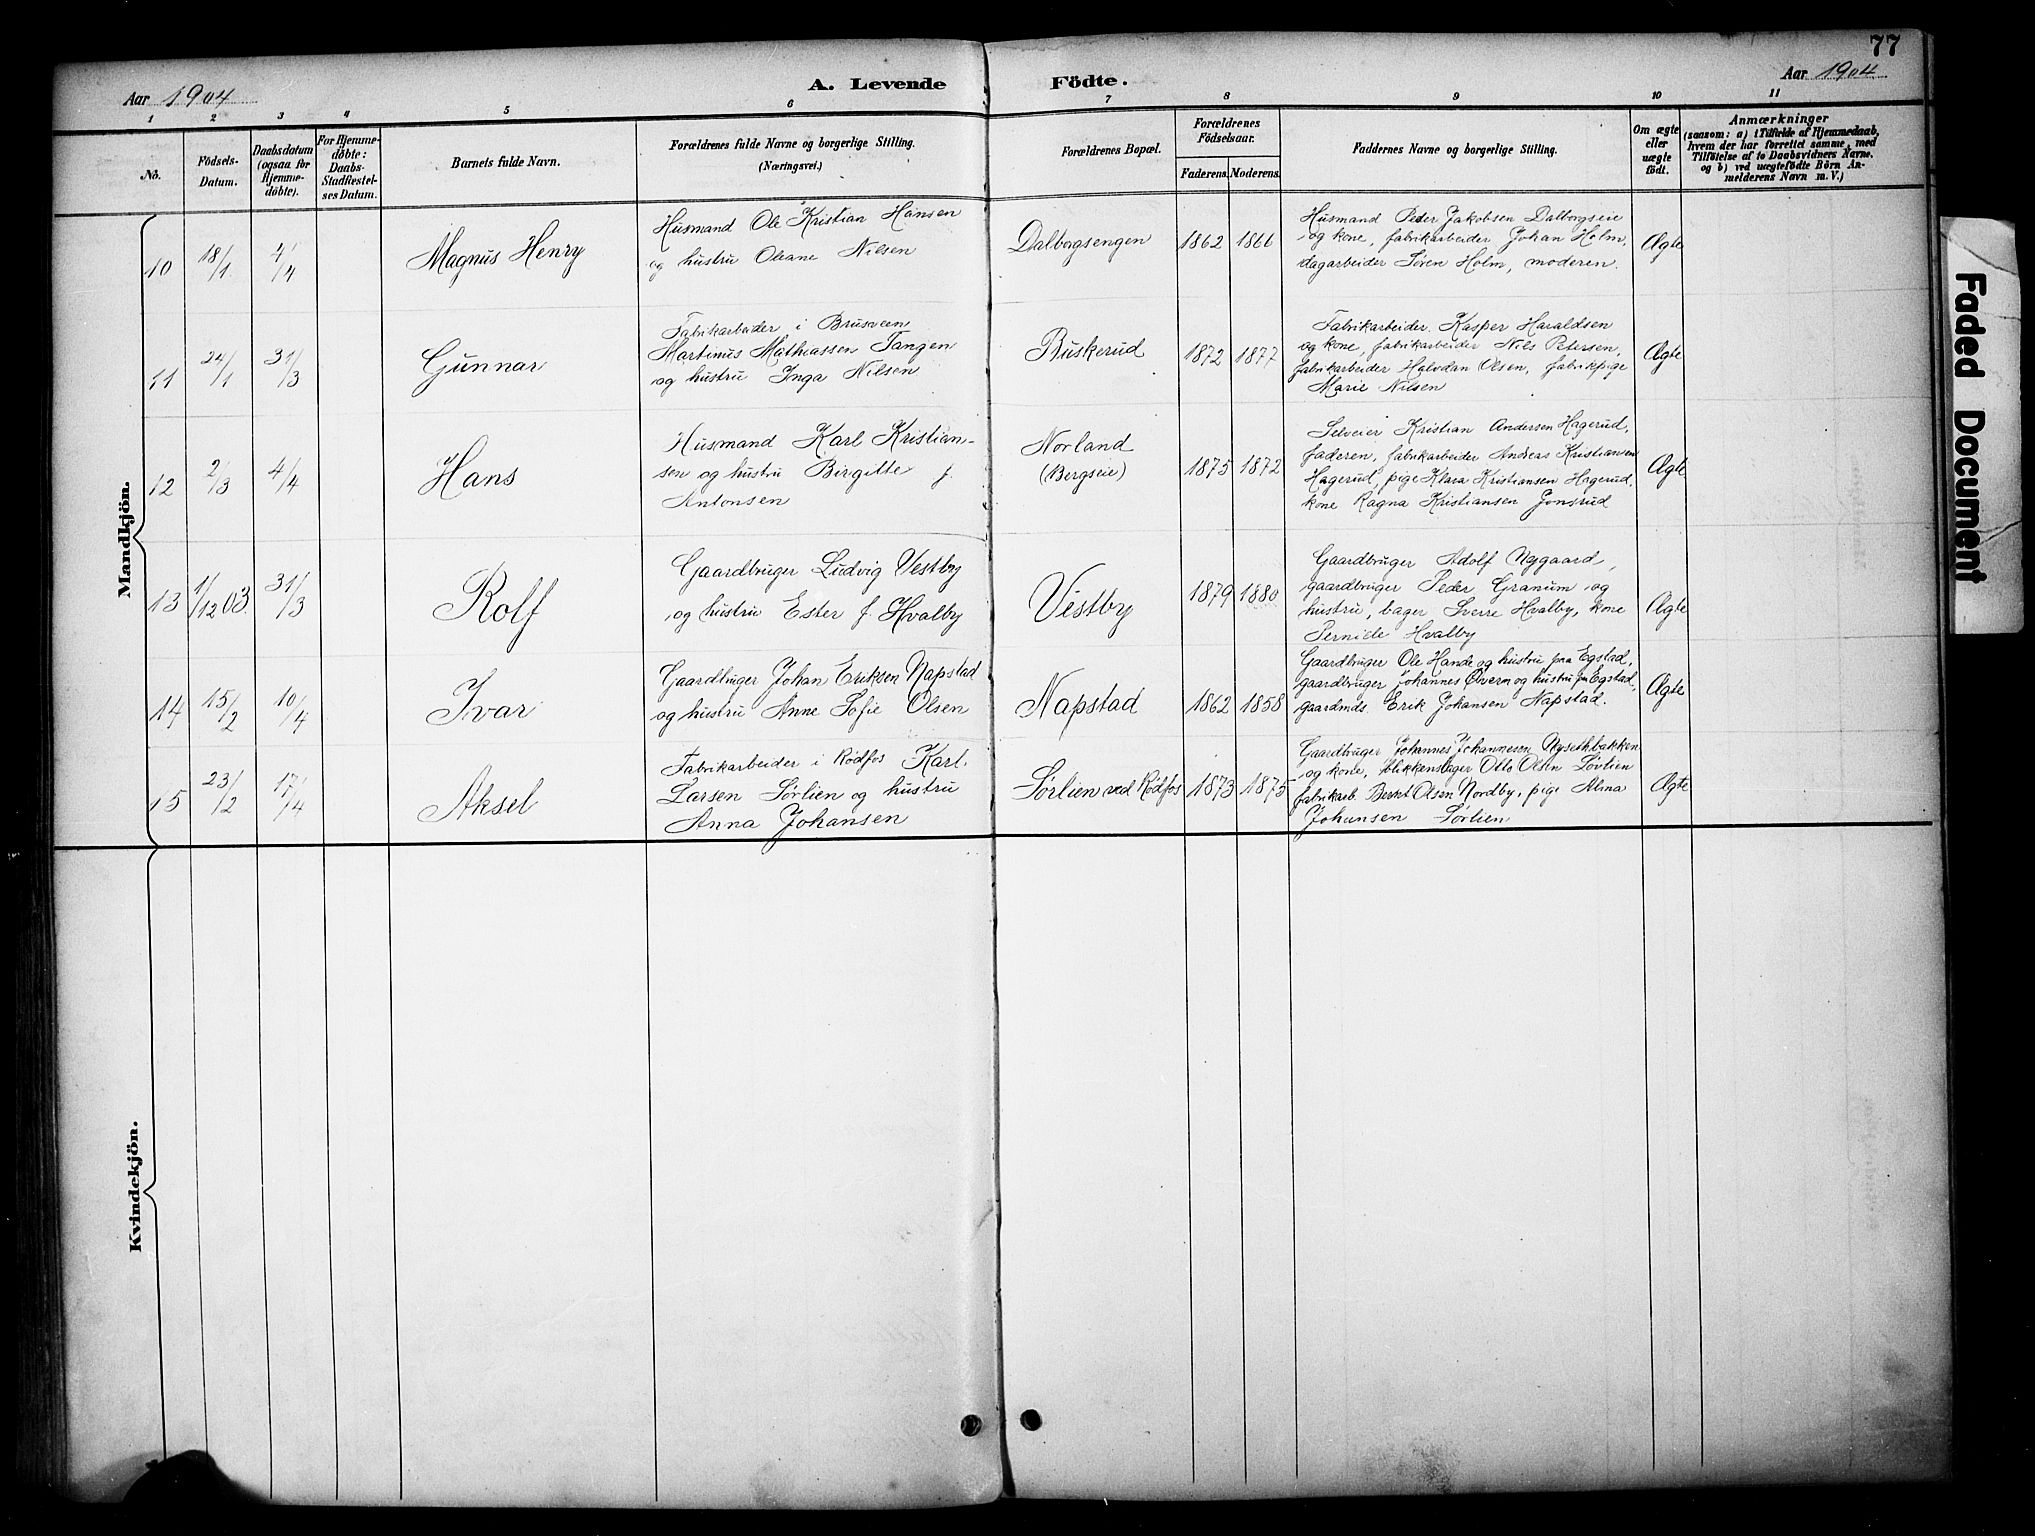 77
Aar 1904
A. Levende Födte.
Aar 1904
1 2 3 4 5 6 7 8 9 10 11
No.
Födsels-
Datum.
Daabsdatum
(ogsaa for
Hjemme-
döbte).
For Hjemme-
döbte:
Daabs-
Stadfæstel-
ses Datum.
Barnets fulde Navn.
Forældrenes fulde Navne og borgerlige Stilling.
(Næringsvei.)
Forældrenes Bopæl.
Forældrenes
Födselsaar.
Faderens. Moderens.
Faddernes Navne og borgerlige Stilling.
Om ægte
eller
uægte
födt.
Anmærkninger
(saasom: a) i Tilfælde af Hjemmedaab,
hvem der har forrettet samme, med
Tilföielse af to Daabsvidners Navne.
og b) ved uægtefödte Börn An-
melderens Navn m. V.)
Mandkjön.
10 18/1 4/4 Magnus Henry
Husmand Ole Kristian Hansen
og hustru Oleane Nilsen
Dalborgsengen 1862 1866
Husmand Peder Jakobsen Dalborgseie
og kone, fabrikarbeider Johan Holm,
dagarbeider Søren Holm, moderen.
Ægte
11 24/1 31/3 Gunnar
Fabrikarbeider i Brusveen
Martinus Mathiassen Tangen
og hustru Inga Nilsen
Buskerud 1872 1877
Fabrikarbeider Kasper Haraldsen
og kone, fabrikarbeider Nils Petersen,
fabrikarbeider Halvdan Olsen, fabrikpige
Marie Nilsen
Ægte
12 2/3 4/4 Hans
Husmand Karl Kristian-
sen og hustru Birgitte f.
Antonsen
Norland
(Bergseie)
1875 1872
Selveier Kristian Andersen Hagerud,
faderen, fabrikarbeider Andreas Kristiansen
Hagerud, pige Klara Kristiansen Hagerud,
kone Ragna Kristiansen Jonsrud
Ægte
13 1/12 03. 31/3 Rolf
Gaardbruger Ludvig Vestby
og hustru Ester f. Hvalby
Vestby 1879 1880
Gaardbruger Adolf Nygaard,
gaardbruger Peder Granum og
hustru, bager Sverre Hvalby, kone
Pernille Hvalby
Ægte
14 15/2 10/4 Ivar
Gaardbruger Johan Eriksen Napstad
og hustru Anne Sofie Olsen
Napstad 1862 1858
Gaardbruger Ole Hande og hustru paa Egstad,
gaardbruger Johannes Øvern og hustru fra Egstad,
gaardmds. Erik Johansen Napstad.
Ægte
15 23/2 17/4 Aksel
Fabrikarbeider i Rødfos Karl
Larsen Sørlien og hustru
Anna Johansen
Sørlien ved Rødfos 1873 1875
Gaardbruger Johannes Johannesen Nysethbakken
og kone, blikkenslager Otto Olsen Sørlien
fabrikarb. Bernt Olsen Nordby, pige Alma
Johansen Sørlien
Ægte
Kvindekjön.
Faded Document